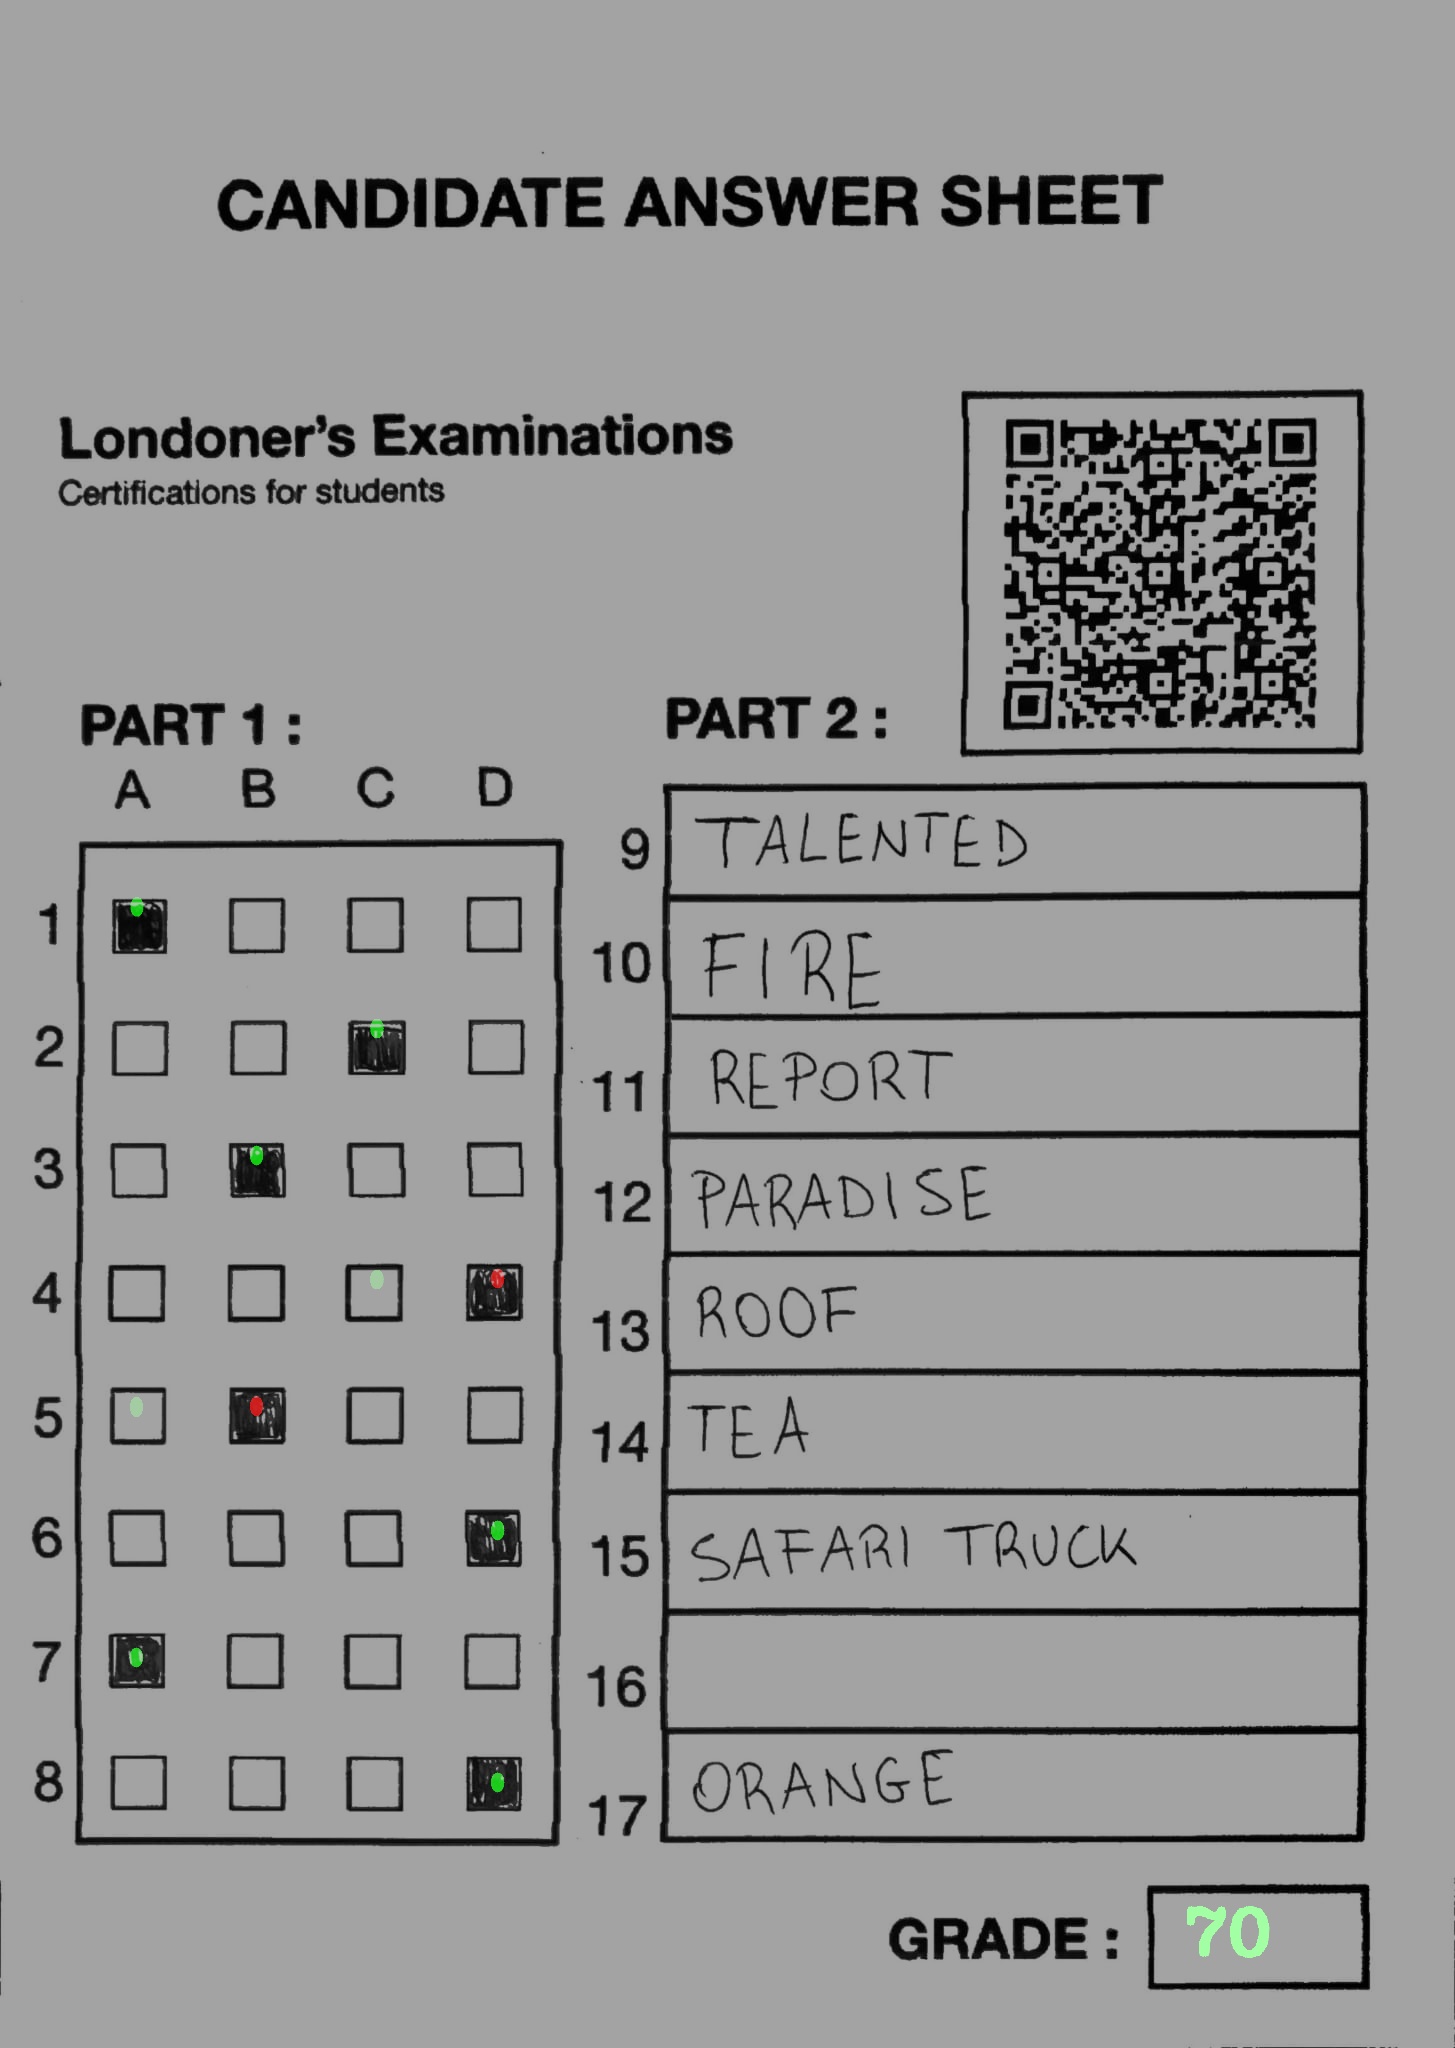 CANDIDATE ANSWER SHEET
Londoner's Examinations
Certifications for students
PART 1 :
A B C D
1
2
3
4
5
6
7
8
PART 2 :
9 TALENTED
10 FIRE
11 REPORT
12 PARADISE
13 ROOF
14 TEA
15 SAFARI TRUCK
16
17 ORANGE
GRADE : 70